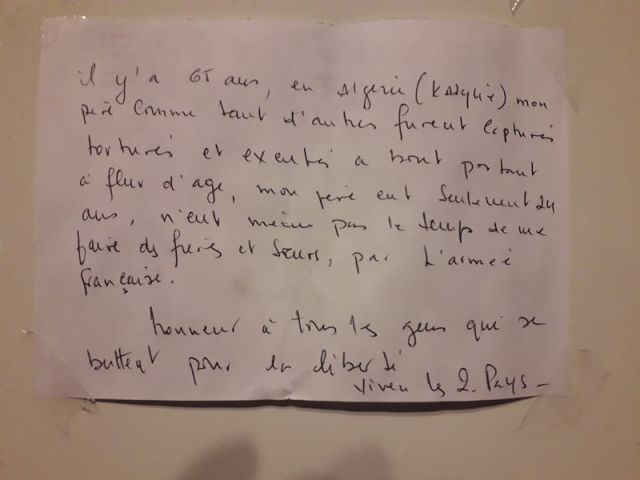 il y'a 65 ans, en Algerie (KABylie) mon
père comme tant d'autres furent capturés
torturés et executés a bout portant
à fleur d'age, mon père eut seulement 24
ans, n'eut même pas le temps de me
faire des frères et sœurs, par L'armeé
française.
honneur à tous les gens qui se
battent pour la liberté
Vives les 2. Pays -